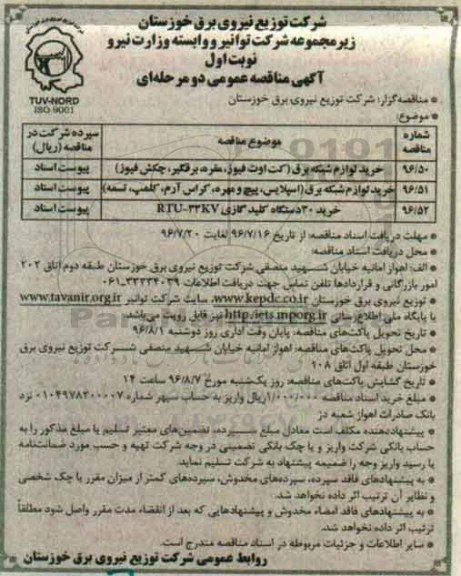 شرکت توزیع نیروی برق خوزستان
زیرمجموعه شرکت توانیر و وابسته وزارت نیرو
نوبت اول
آگهی مناقصه عمومی دو مرحله‌ای
TUV-NORD
ISO 9001
* مناقصه‌گزار: شرکت توزیع نیروی برق خوزستان
* موضوع:
شماره مناقصه | موضوع مناقصه | سپرده شرکت در مناقصه (ریال)
۹۶/۵۰ | خرید لوازم شبکه برق (کت اوت فیوز، مقره، برقگیر، چکش فیوز) | پیوست اسناد
۹۶/۵۱ | خرید لوازم شبکه برق (اسپلایس، پیچ و مهره، کراس آرم، کلمپ، تسمه) | پیوست اسناد
۹۶/۵۲ | خرید ۳۰ دستگاه کلید گازی RTU-۳۳KV | پیوست اسناد
* مهلت دریافت اسناد مناقصه: از تاریخ ۹۶/۷/۱۶ لغایت ۹۶/۷/۲۰
* محل دریافت اسناد مناقصه:
* الف: اهواز امانیه خیابان شهید منصفی شرکت توزیع نیروی برق خوزستان طبقه دوم اتاق ۲۰۲
امور بازرگانی و قراردادها تلفن تماس جهت دریافت اطلاعات ۳۳۳۳۴۰۳۹-۰۶۱
* توزیع نیروی برق خوزستان www.kepdc.co.ir، سایت شرکت توانیر www.tavanir.org.ir
یا پایگاه ملی اطلاع رسانی http:iets.mporg.ir نیز قابل رویت می‌باشد.
* تاریخ تحویل پاکت‌های مناقصه: پایان وقت اداری روز دوشنبه ۹۶/۸/۱
* محل تحویل پاکت‌های مناقصه: اهواز امانیه خیابان شهید منصفی شرکت توزیع نیروی برق
خوزستان طبقه اول اتاق ۱۰۸
* تاریخ گشایش پاکت‌های مناقصه: روز یک‌شنبه مورخ ۹۶/۸/۷ ساعت ۱۴
* مبلغ خرید اسناد مناقصه ۱/۰۰۰/۰۰۰ ریال واریز به حساب سپهر شماره ۰۱۰۴۹۷۸۲۰۰۰۰۷ نزد
بانک صادرات اهواز شعبه دز
* پیشنهاددهنده مکلف است معادل مبلغ سپرده، تضمین‌های معتبر تسلیم یا مبلغ مذکور را به
حساب بانکی شرکت واریز و یا چک بانکی تضمینی در وجه شرکت تهیه و حسب مورد ضمانت‌نامه
یا رسید واریز وجه را ضمیمه پیشنهاد به شرکت تسلیم نماید.
* به پیشنهادهای فاقد سپرده، سپرده‌های مخدوش، سپرده‌های کمتر از میزان مقرر یا چک شخصی
و نظایر آن ترتیب اثر داده نخواهد شد.
* به پیشنهادهای فاقد امضاء مخدوش و پیشنهادهایی که بعد از انقضاء مدت مقرر واصل شود مطلقاً
ترتیب اثر داده نخواهد شد.
* سایر اطلاعات و جزئیات مربوطه در اسناد مناقصه مندرج است.
روابط عمومی شرکت توزیع نیروی برق خوزستان